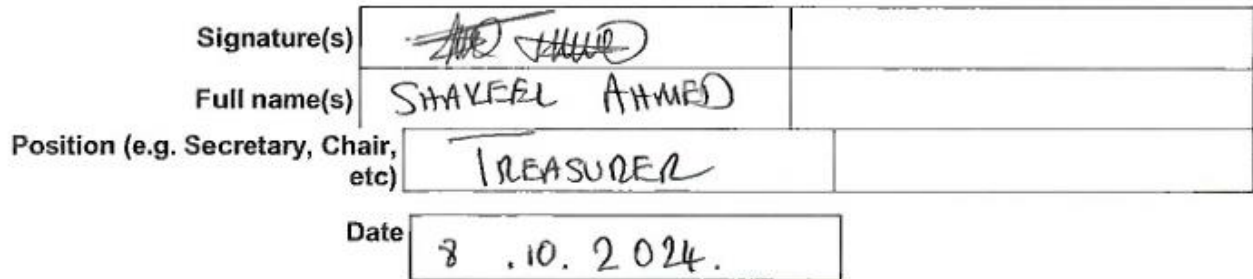 Signature(s)
Full name(s) SHAKEEL AHMED
Position (e.g. Secretary, Chair,
etc) TREASURER
Date 8 .10. 2024.